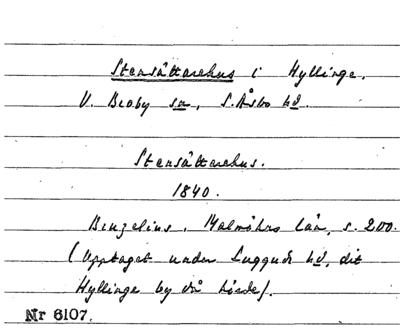 Stensättarehus i Hyllinge.
V. Broby sn, S. Åsbo hd.
Stensättarehus.
1840.
Benzelius, Malmöhus län, s. 200.
(Upptaget under Luggude hd, dit
Hyllinge by då hörde).
Nr 6107.